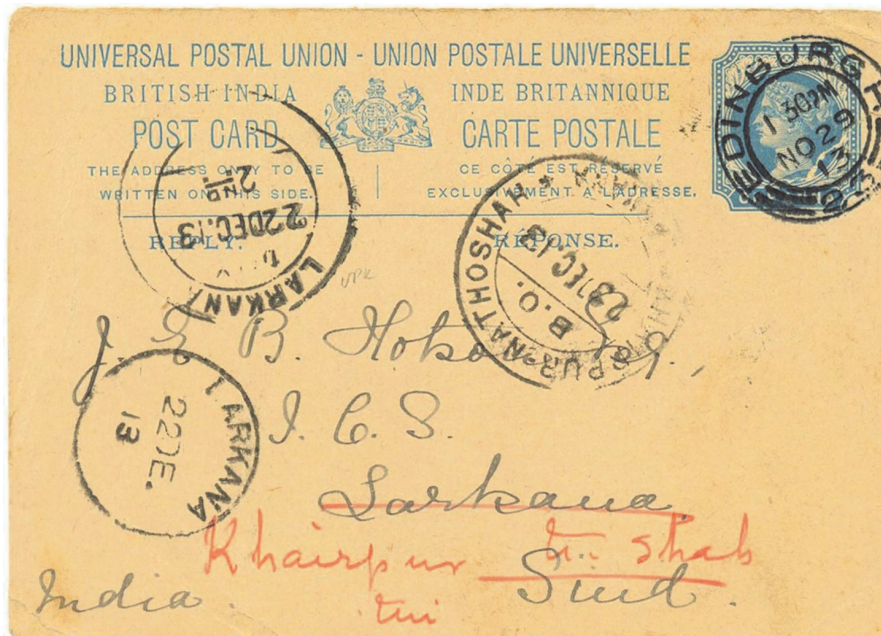 UNIVERSAL POSTAL UNION - UNION POSTALE UNIVERSELLE
BRITISH INDIA
POST CARD
THE ADDRESS ONLY TO BE
WRITTEN ON THIS SIDE.
REPLY.
INDE BRITANNIQUE
CARTE POSTALE
CE CÔTÉ EST RÉSERVÉ
EXCLUSIVEMENT A L'ADRESSE.
RÉPONSE.
EDINBURGH
1 30PM
NO 29
13
2ND
22DEC.13
LARKAN
NATHOSHAH
B.O.
23DEC.13
LARKANA
22DE.
13
J. B.
I. C. S.
Larkana
Khairpur Shah
Sind.
India.